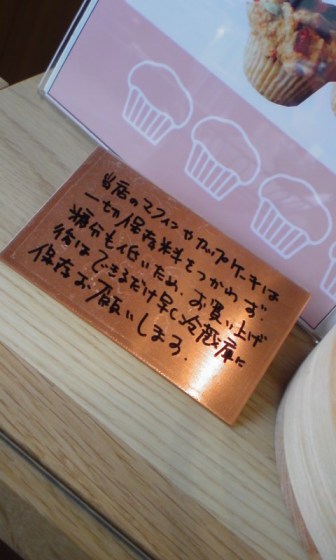 当店のマフィンやカップケーキは
一切保存料をつかわず
糖分も低いため、お買い上げ
後はできるだけ早く冷蔵庫に
保存お願いします。